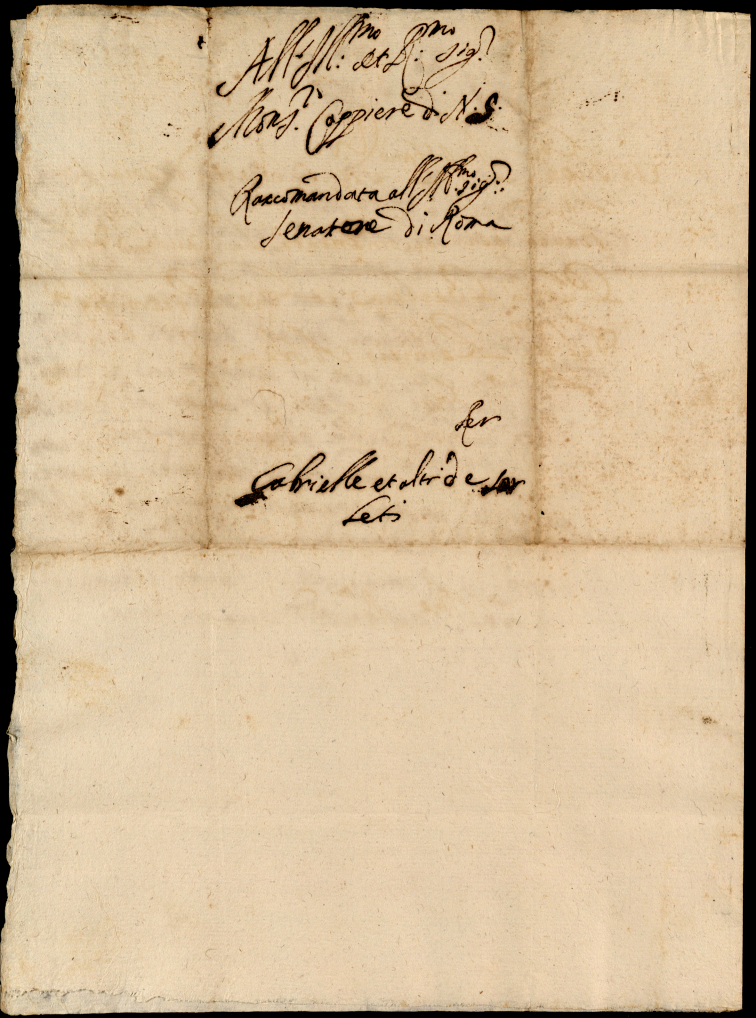 All' Ill:mo et R:mo Sig.r
Mons.r Coppiere di N. S.
Raccomandata all' Ill:mo Sig.r
Senatore di Roma
Per
Gabrielle et altri de Ser
Leti